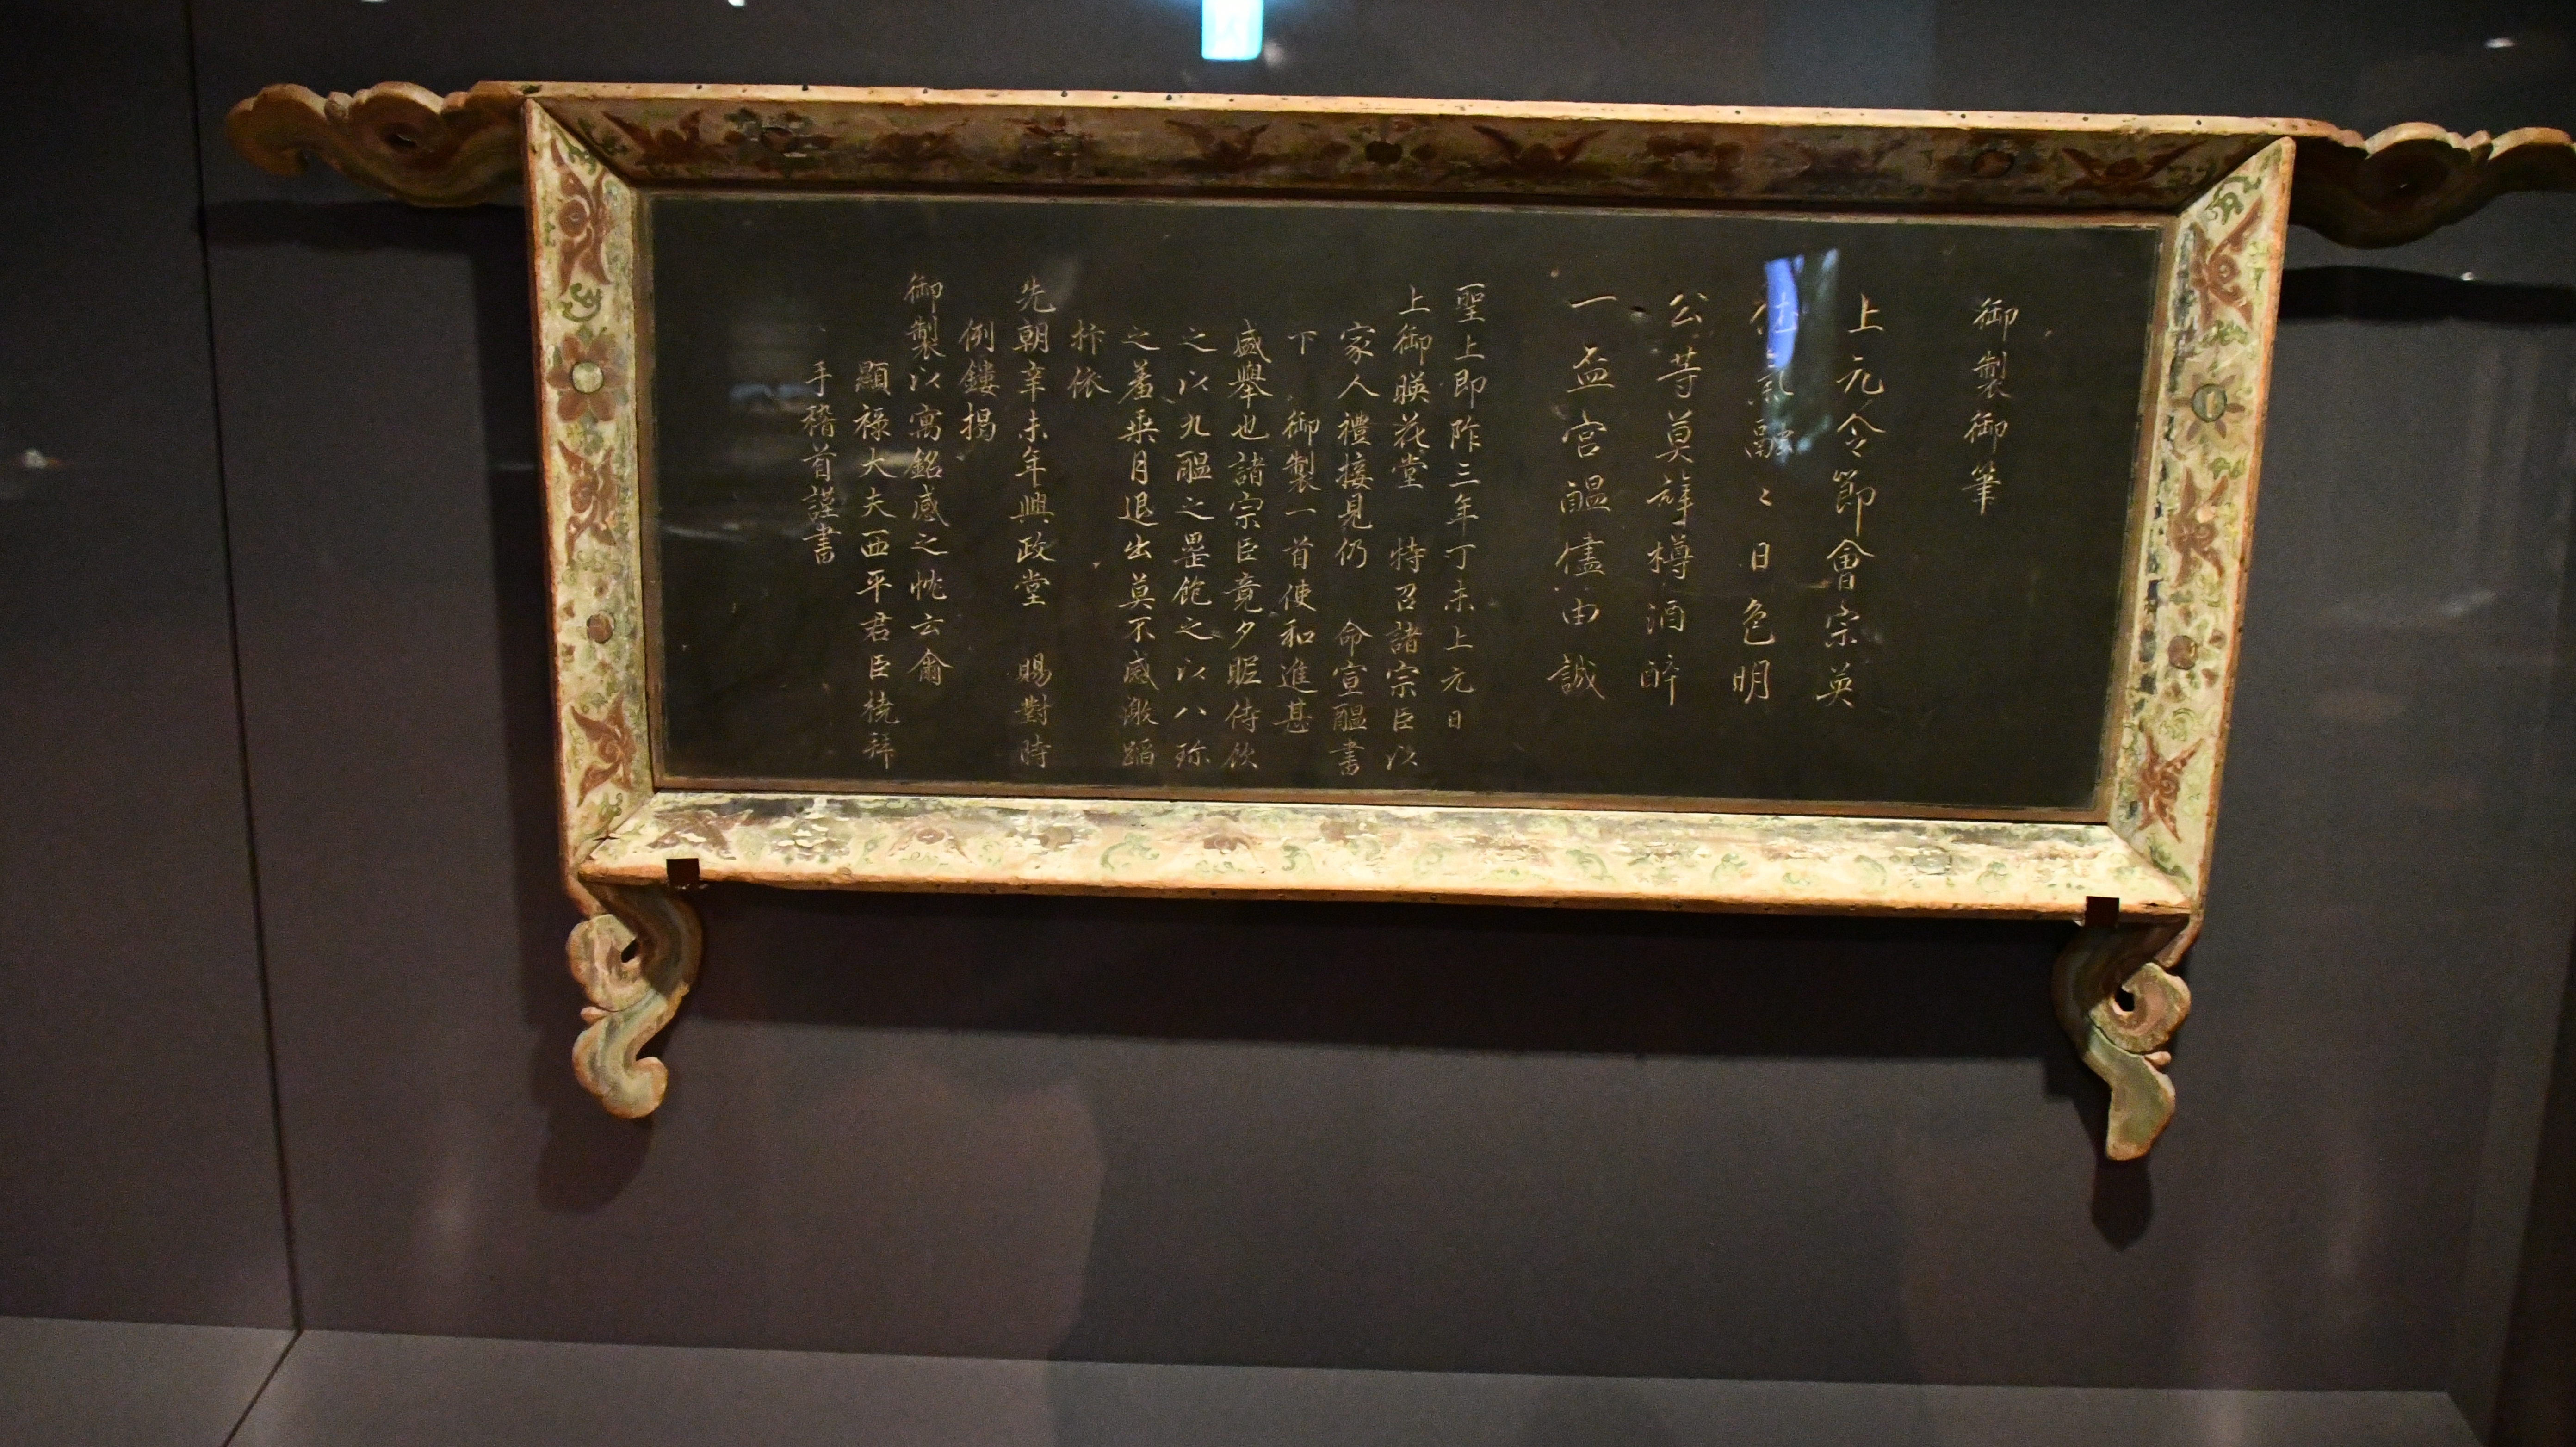 御製御筆
上元令節會宗英
佳氣融〻日色明
公等莫辭樽酒醉
一盃宮醞儘由誠
聖上即阼三年丁未上元日
上御暎花堂 特召諸宗臣以
家人禮接見仍 命宣醞書
下 御製一首使和進甚
盛擧也諸宗臣竟夕昵侍飮
之以九醞之罍飽之以八珍
之羞乘月退出莫不感激蹈
抃依
先朝辛未年興政堂 賜對時
例鏤揭
御製以寓銘感之忱云爾
顯祿大夫西平君臣橈拜
手稽首謹書